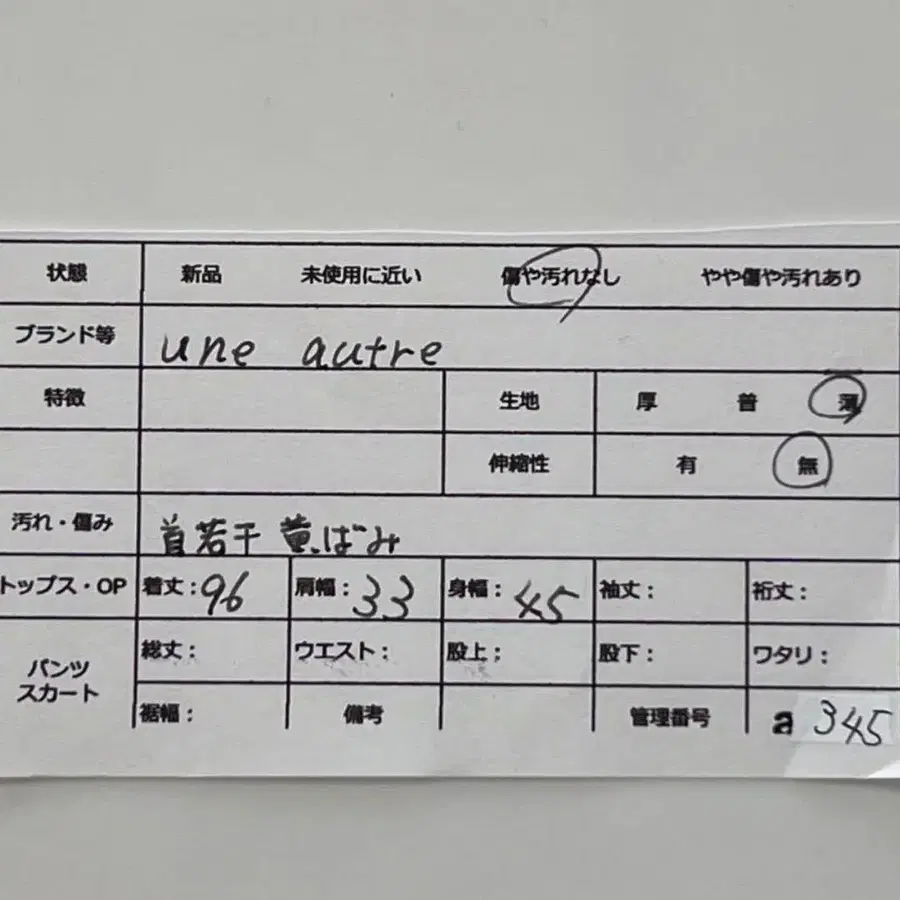 状態 新品 未使用に近い 傷や汚れなし やや傷や汚れあり
ブランド等 une autre
特徴 生地 厚 普 薄
伸縮性 有 無
汚れ・傷み 首若干 黄ばみ
トップス・OP 着丈：96 肩幅：33 身幅：45 袖丈： 裄丈：
パンツ スカート 総丈： ウエスト： 股上： 股下： ワタリ：
裾幅： 備考 管理番号 a 345